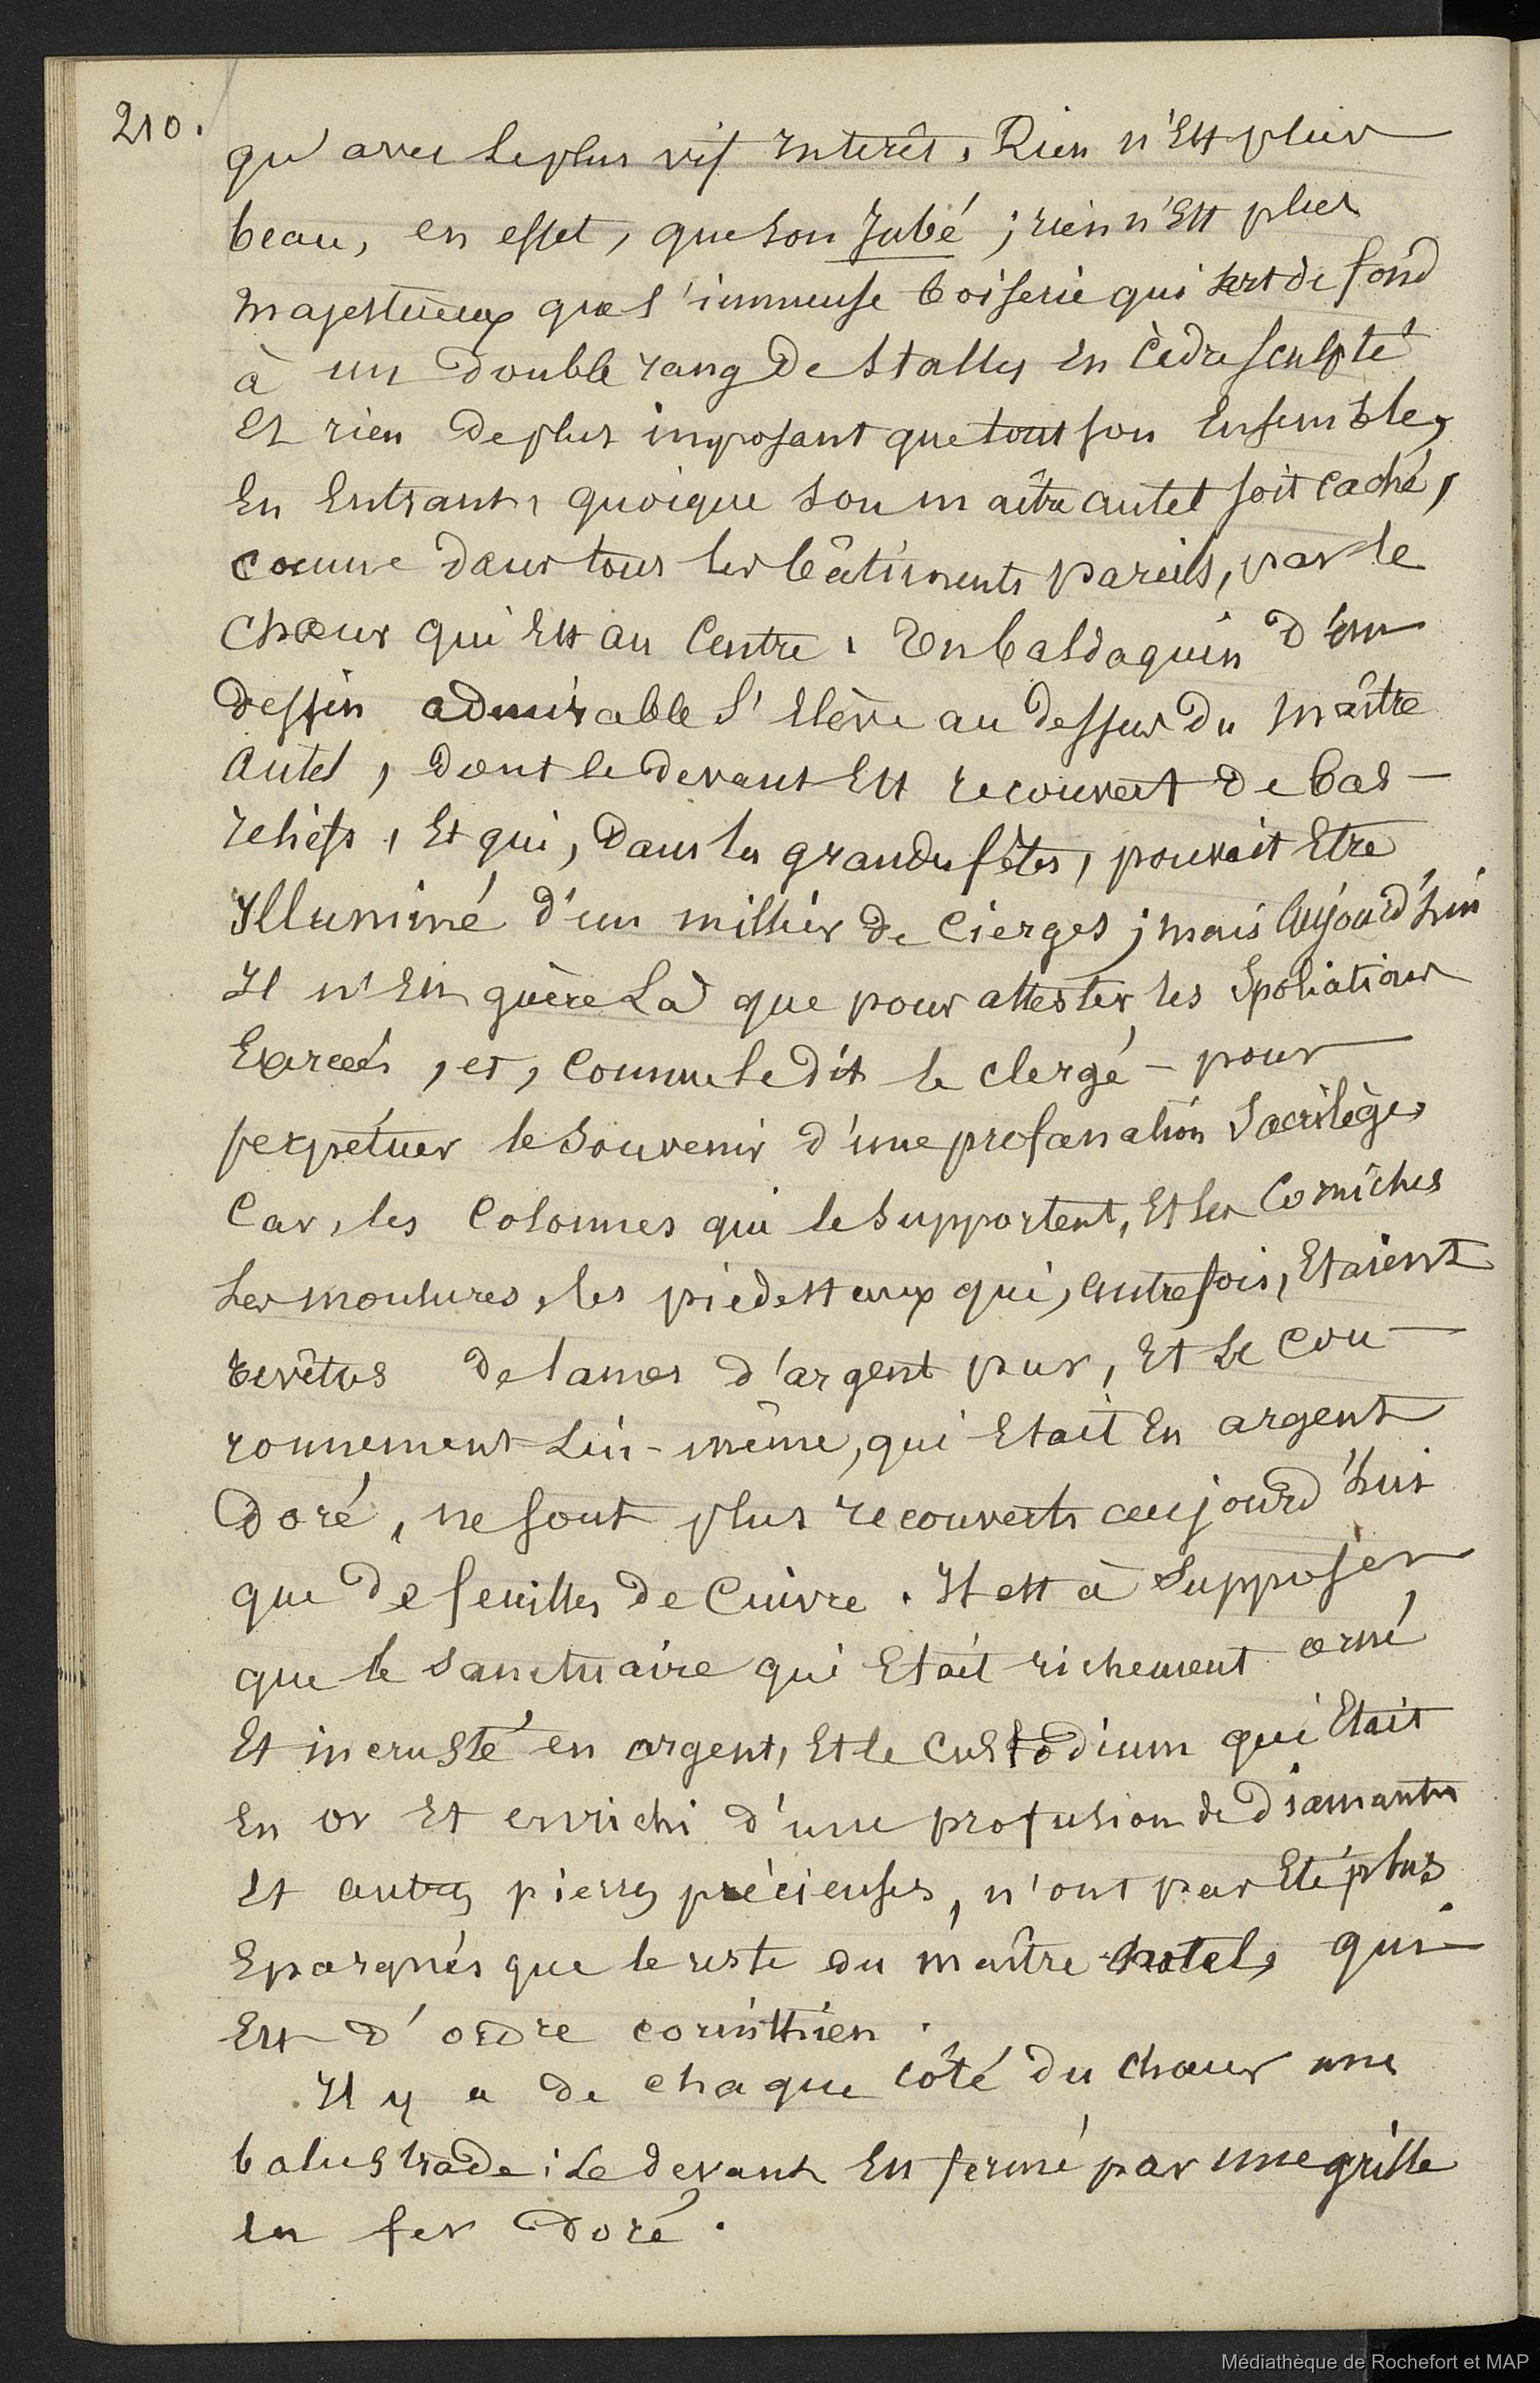 210.
qu'avec le plus vif Interêt. Rien n'Est plus
beau, en effet, que son Jubé ; rien n'Est plus
majestueux que l'immense boiserie qui sert de fond
à un double rang de stalles en cèdre sculpté
Et rien de plus imposant que tout son Ensemble,
En Entrant, quoique son maître autel soit caché,
comme dans tous les bâtiments pareils, par le
Chœur qui Est au Centre. Un baldaquin d'un
dessin admirable s'Elève au dessus du maître
autel, dont le devant Est recouvert de bas-
reliefs, Et qui, dans les grandes fêtes, pouvait Etre
Illuminé d'un millier de Cierges ; mais Aujourd'hui
Il n'Est guère là que pour attester les Spoliations
Exercées, et, comme le dit le clergé - pour
perpétuer le souvenir d'une profanation Sacrilège,
Car, les Colonnes qui le supportent, Et les Corniches
les moulures, les piédestaux qui, autrefois, Etaient
revêtus de lames d'argent pur, Et le cou-
ronnement lui-même, qui Etait En argent
doré, ne sont plus recouverts aujourd'hui
que de feuilles de Cuivre. Il est à Supposer
que le Sanctuaire qui Etait richement orné
Et incrusté en argent, Et le Custodium qui Etait
En or Et enrichi d'une profusion de diamants
Et autres pierres précieuses, n'ont pas Eté plus
Epargnés que le reste du maître autel, qui
Est d'ordre corinthien.
Il y a de chaque côté du chœur une
balustrade ; le devant Est fermé par une grille
en fer doré.
Médiathèque de Rochefort et MAP